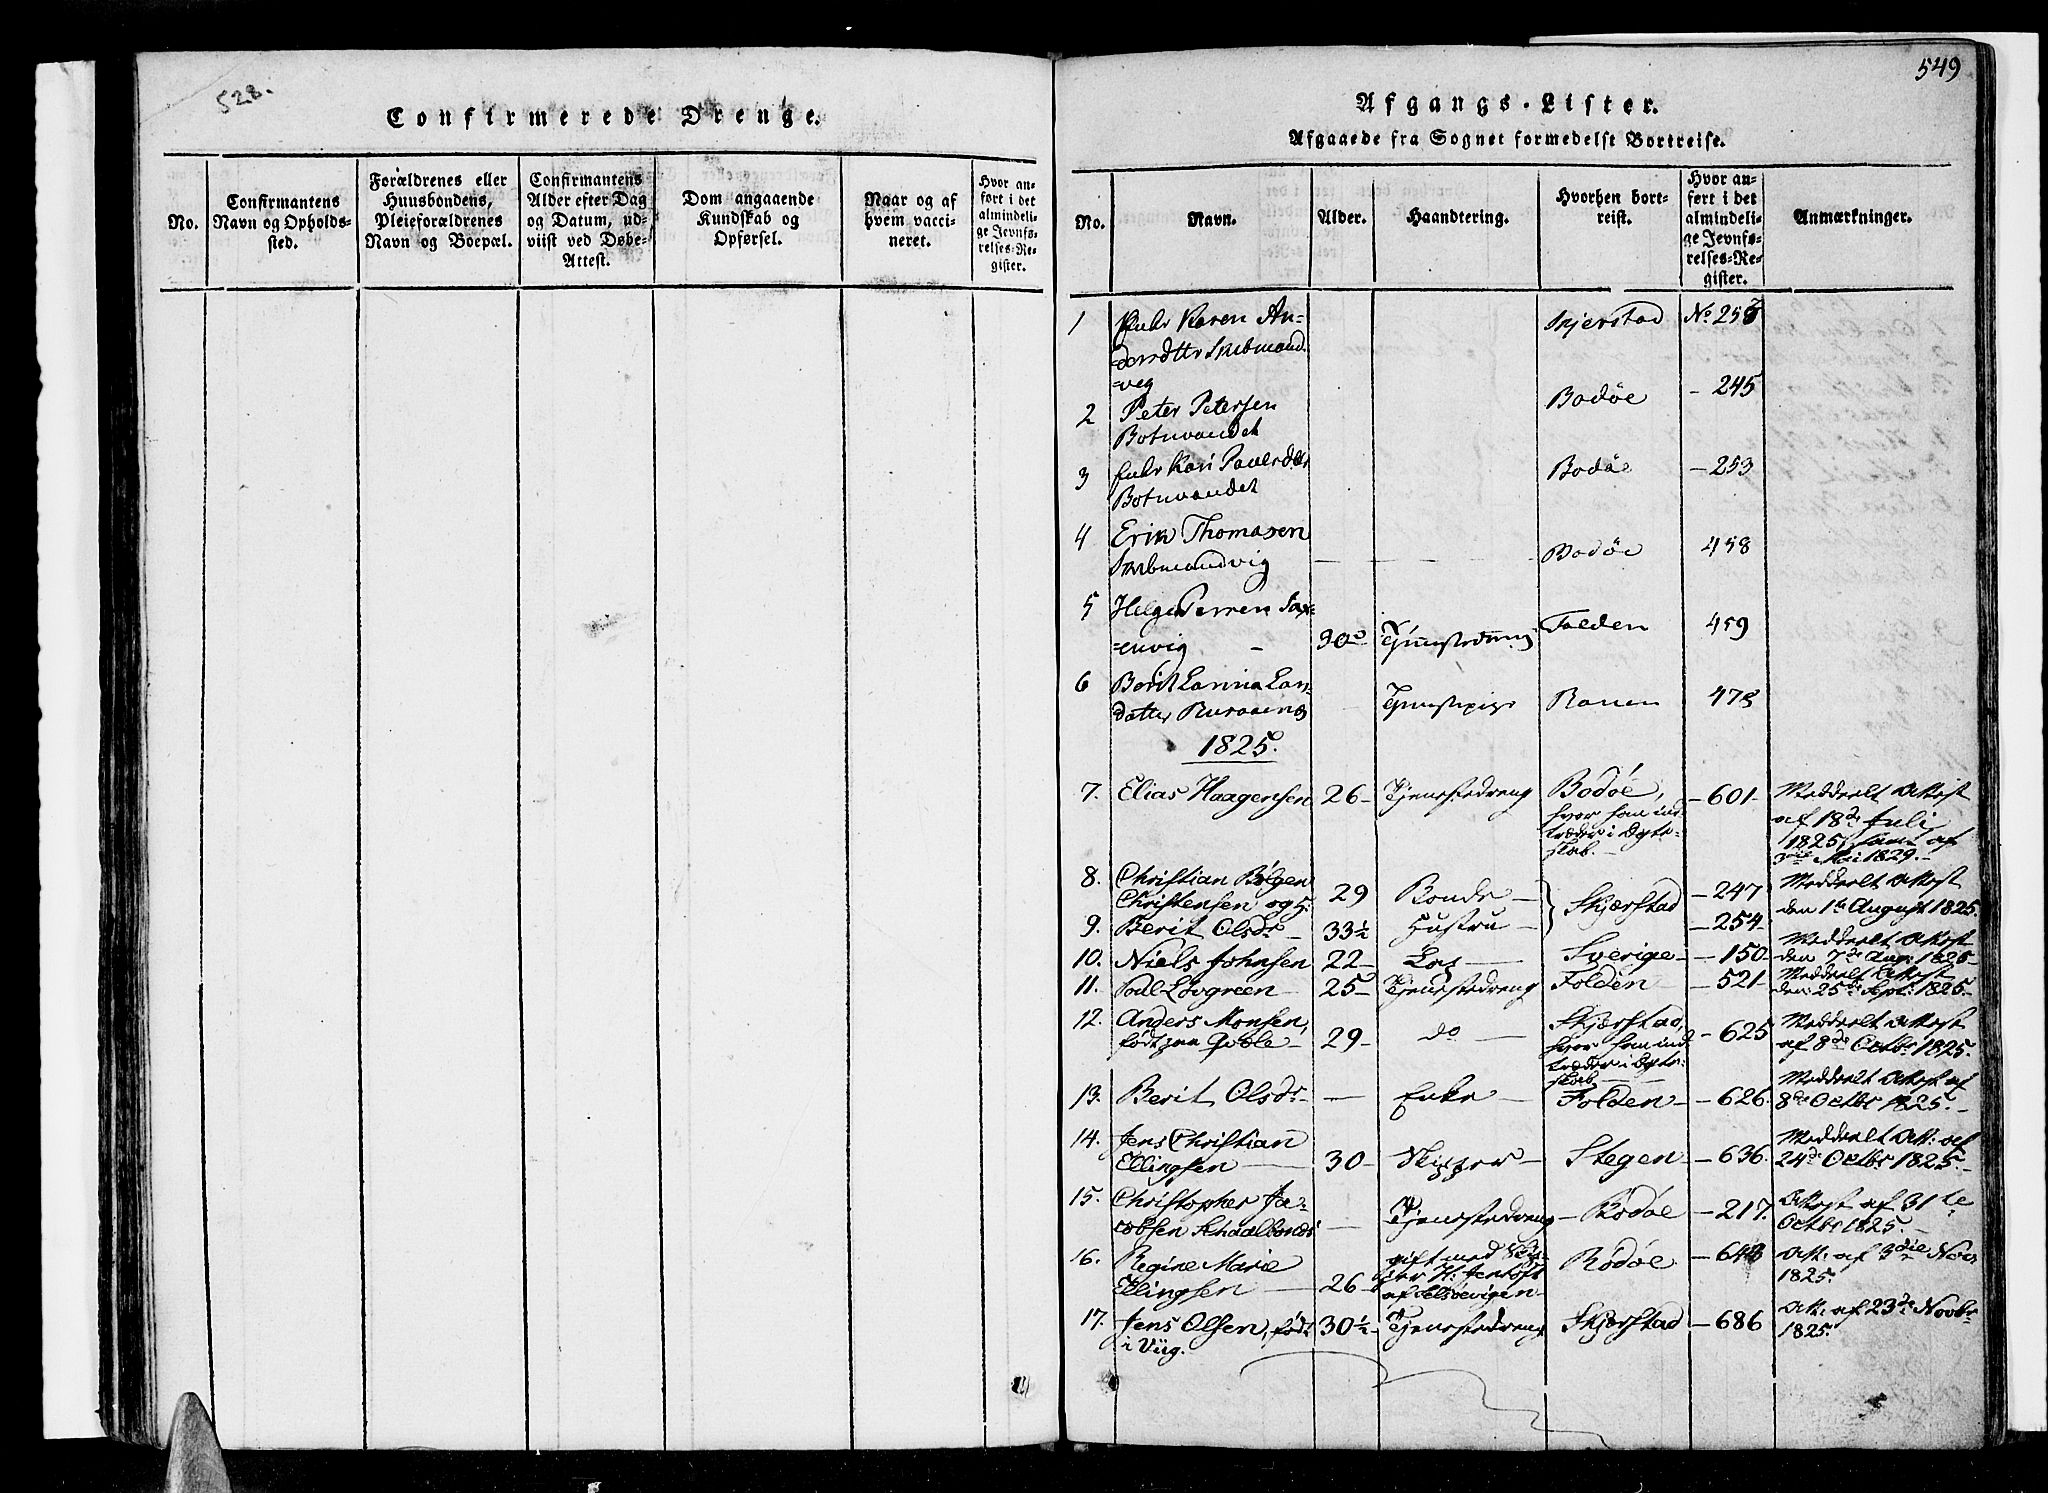 528.
Confirmerede Drenge.
No.
Confirmantens
Navn og Opholds-
sted.
Forældrenes eller
Huusbondens,
Pleieforældrenes
Navn og Boepæl.
Confirmantens
Alder efter Dag
og Datum, ud-
viist ved Døbe-
Attest.
Dom angaaende
Kundskab og
Opførsel.
Naar og af
hvem vacci-
neret.
Hvor an-
ført i det
almindeli-
ge Jevnfø-
relses-Re-
gister.
549
Afgangs-Lister.
Afgaaede fra Sognet formedelst Bortreise.
No.
Navn.
Alder.
Haandtering.
Hvorhen bort-
reist.
Hvor an-
ført i det
almindeli-
ge Jevnfø-
relses-Re-
gister.
Anmærkninger.
1 Enke Karen An-
Skjerstad No
2 Peter Petersen
Botnvandet
Bodøe - 245
3 Enke Kari
Botnvandet
Bodøe - 253
4 Erik Thomasen
Bodøe 458
5 Helge
=envig - Tjenestedreng Folden 459
6 Berit
datter Tjenestepige Ranen
1825.
7. Elias Haagensen 26 - Tjenestedreng Bodøe, - 601 - Meddeelt Attest
hvor han ind-
træder i Ægte-
skab.
af 18de Juli
1825, samt af
Mai 1829.
8. Christian
Christensen og H: 29 Bonde - Skjærstad - 247 Meddeelt Attest
den 1ste August 1825.
9. Berit Olsdr - 33½ Hustru - - 254 -
10. Niels Johnsen 22 - - Sverige - 150 - Meddeelt Attest
den 7de Aug: 1825
11. Povl Løvgreen 25 - Tjenestedreng Folden - 521 - Meddeelt Attest
den: 25de Sept: 1825.
12. Anders Monsen,
født paa 29 - do - Skjærstad, - 625 Meddeelt Attest
hvor han ind-
træder i Ægte-
skab
af 8de Octbr 1825.
13. Berit Olsdr - - Enke - Folden - 626. Meddeelt Attest af
8de Octbr 1825.
14. Jens Christian
Ellingsen - 30 - Skipper - Stegen - 636. Meddeelt Att: af
24de Octbr 1825.
15. Christopher Ja-
cobsen - Tjenestedreng - Bodøe - 217. Attest af 31te
Octbr 1825.
16. Regine Marie
Ellingsen - 26 - gift med
H: Jentoft
af Rødøe Att. af 3die Nov:
1825.
17. Jens Olsen, født 30½ - Tjenestedreng Skjærstad - 686 Att. af 23de Novbr
i Viig. 1825.